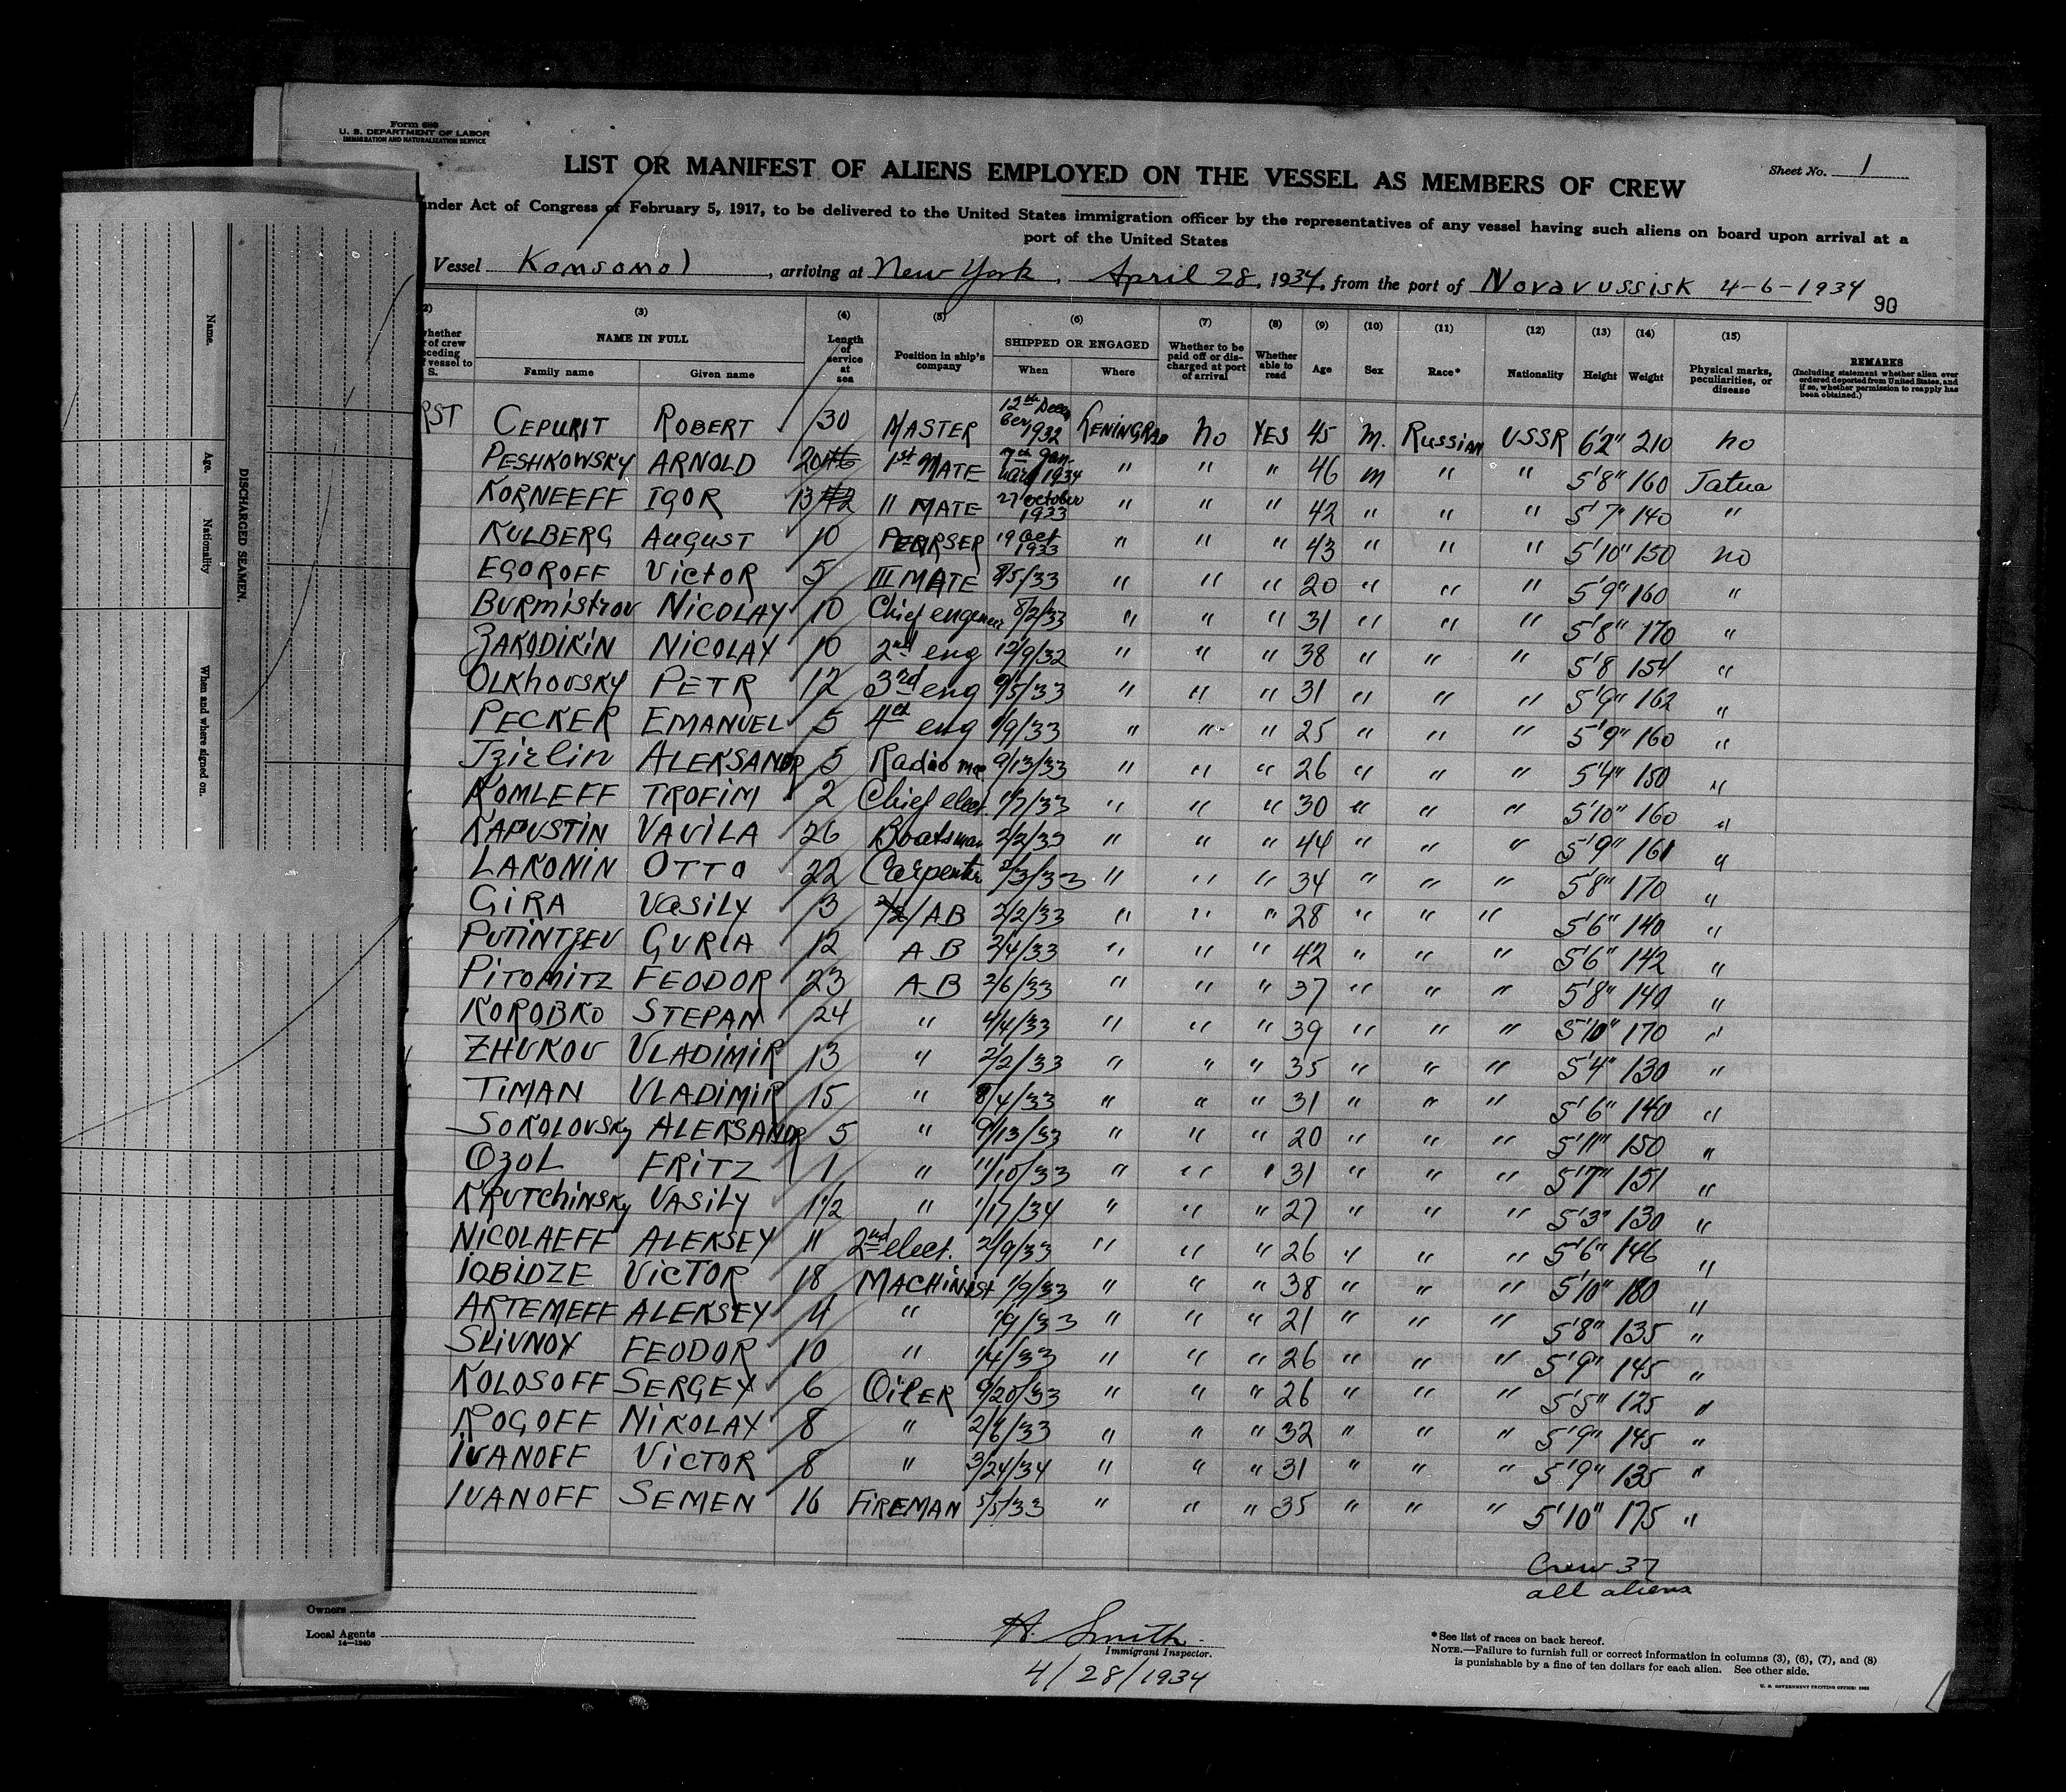 Form 689
U. S. DEPARTMENT OF LABOR
IMMIGRATION AND NATURALIZATION SERVICE
Sheet No. 1
LIST OR MANIFEST OF ALIENS EMPLOYED ON THE VESSEL AS MEMBERS OF CREW
under Act of Congress of February 5, 1917, to be delivered to the United States immigration officer by the representatives of any vessel having such aliens on board upon arrival at a
port of the United States
Vessel Komsomol, arriving at New York, April 28, 1934, from the port of Novarussisk 4-6-1934
90
(3) (4) (5) (6) (7) (8) (9) (10) (11) (12) (13) (14) (15)
NAME IN FULL Family name Given name Length of service at sea Position in ship's company SHIPPED OR ENGAGED When Where Whether to be paid off or discharged at port of arrival Whether able to read Age Sex Race* Nationality Height Weight Physical marks, peculiarities, or disease REMARKS
(Including statement whether alien ever ordered deported from United States, and if so, whether permission to reapply has been obtained.)
RST CEPURIT ROBERT 30 MASTER 12th Decem ber 1932 LENINGRAD No YES 45 M. Russian USSR 6'2" 210 no
PESHKOWSKY ARNOLD 20 1st MATE 1934 " " " 46 m " " 5'8" 160 Tatua
KORNEEFF IGOR 13 II MATE 27 October 1933 " " " 42 " " " 5'7" 140 "
KULBERG AUGUST 10 PEARSER 19 Oct 1933 " " " 43 " " " 5'10" 150 no
EGOROFF VICTOR 5 III MATE 8/5/33 " " " 20 " " " 5'9" 160 "
BURMISTROV NICOLAY 10 Chief engeneer 8/2/33 " " " 31 " " " 5'8" 170 "
ZAKODIKIN NICOLAY 10 2nd eng 12/9/32 " " " 38 " " " 5'8 154 "
OLKHOVSKY PETR 12 3rd eng 9/5/33 " " " 31 " " " 5'9" 162 "
PECKER EMANUEL 5 4th eng 1/9/33 " " " 25 " " " 5'9" 160 "
Tzirlin ALEKSANDR 5 Radio man 9/13/33 " " " 26 " " " 5'4" 150 "
KOMLEFF TROFIM 2 Chief elect. 1/7/33 " " " 30 " " " 5'10" 160 "
KAPUSTIN VAVILA 26 Boatsman 2/2/33 " " " 44 " " " 5'9" 161 "
LAKONIN OTTO 22 Carpenter 2/3/33 " " " 34 " " " 5'8" 170 "
GIRA VASILY 3 AB 2/2/33 " " " 28 " " " 5'6" 140 "
PUTINTZEV GURIA 12 AB 2/4/33 " " " 42 " " " 5'6" 142 "
PITOMITZ FEODOR 23 AB 2/6/33 " " " 37 " " " 5'8" 140 "
KOROBKO STEPAN 24 " 4/4/33 " " " 39 " " " 5'10" 170 "
ZHUKOV VLADIMIR 13 " 2/2/33 " " " 35 " " " 5'4" 130 "
TIMAN VLADIMIR 15 " 8/4/33 " " " 31 " " " 5'6" 140 "
SOKOLOVSKY ALEKSANDR 5 " 9/13/33 " " " 20 " " " 5'11" 150 "
OZOL FRITZ 1 " 11/10/33 " " " 31 " " " 5'7" 151 "
KRUTCHINSKY VASILY 1 1/2 " 1/17/34 " " " 27 " " " 5'3" 130 "
NICOLAEFF ALEKSEY 11 2nd elect. 2/9/33 " " " 26 " " " 5'6" 146 "
IOBIDZE VICTOR 18 MACHINIST 1/9/33 " " " 38 " " " 5'10" 180 "
ARTEMEFF ALEKSEY 4 " 1/9/33 " " " 21 " " " 5'8" 135 "
SLIVNOY FEODOR 10 " 1/4/33 " " " 26 " " " 5'9" 145 "
KOLOSOFF SERGEY 6 OILER 9/20/33 " " " 26 " " " 5'5" 125 "
ROGOFF NIKOLAY 8 " 2/6/33 " " " 32 " " " 5'9" 145 "
IVANOFF VICTOR 8 " 3/24/34 " " " 31 " " " 5'9" 135 "
IVANOFF SEMEN 16 FIREMAN 5/5/33 " " " 35 " " " 5'10" 175 "
Crew 37
all aliens
Owners
Local Agents
14—1240
H. Smith
Immigrant Inspector.
4/28/1934
*See list of races on back hereof.
NOTE.—Failure to furnish full or correct information in columns (3), (6), (7), and (8)
is punishable by a fine of ten dollars for each alien. See other side.
U. S. GOVERNMENT PRINTING OFFICE: 1933
DISCHARGED SEAMEN.
Name.
Age.
Nationality
When and where signed on.